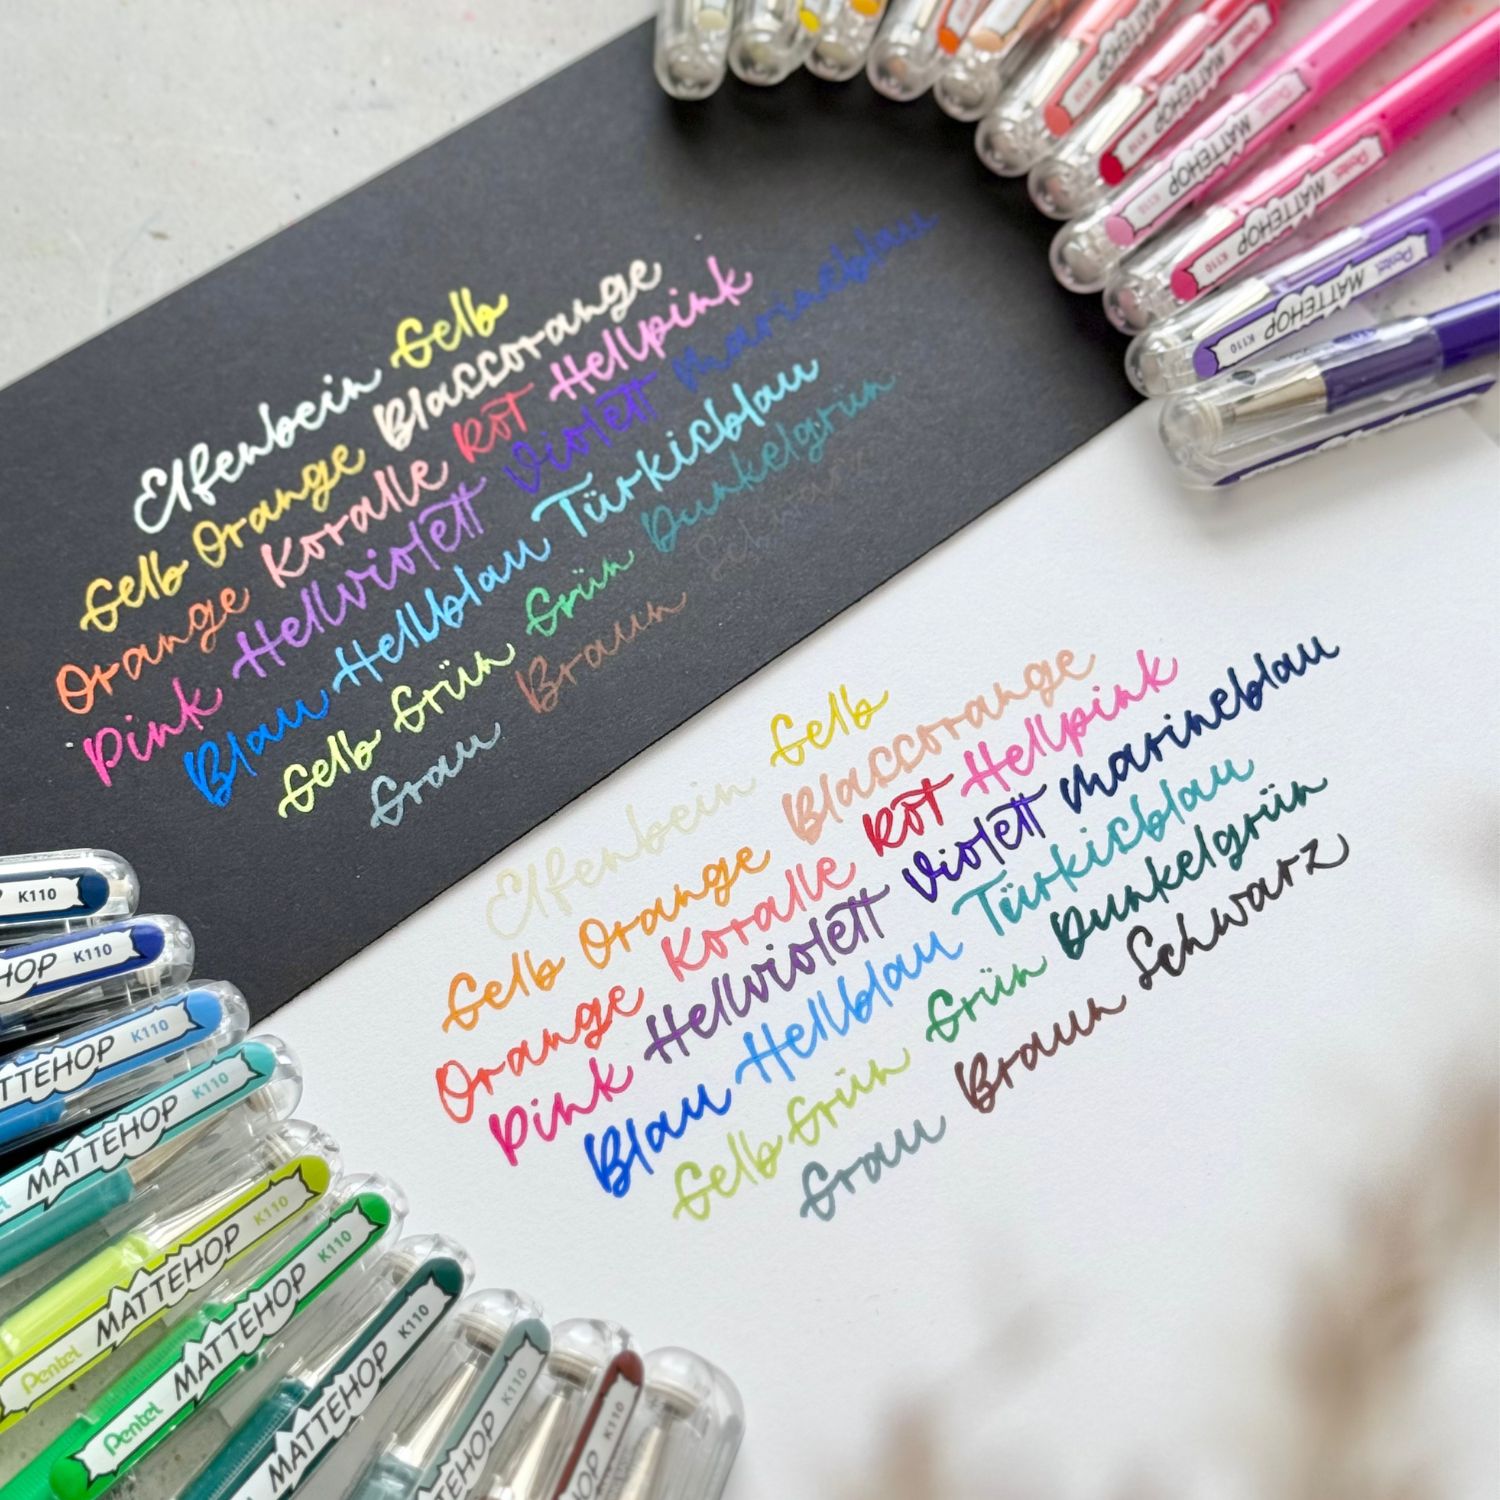 Elfenbein Gelb
Gelb Orange Blassorange
Orange Koralle Rot Hellpink
Pink Hellviolett Violett Marineblau
Blau Hellblau Türkisblau
Gelb Grün Grün Dunkelgrün
Grau Braun Schwarz
Elfenbein Gelb
Gelb Orange Blassorange
Orange Koralle Rot Hellpink
Pink Hellviolett Violett Marineblau
Blau Hellblau Türkisblau
Gelb Grün Grün Dunkelgrün
Grau Braun Schwarz
MATTEHOP
MATTEHOP K110
Pentel MATTEHOP K110
Pentel MATTEHOP K110
Pentel MATTEHOP K110
K110
HOP K110
TTEHOP K110
MATTEHOP K110
Pentel MATTEHOP K110
Pentel MATTEHOP K110
MATTEHOP K110
EHOP K110
HOP K110